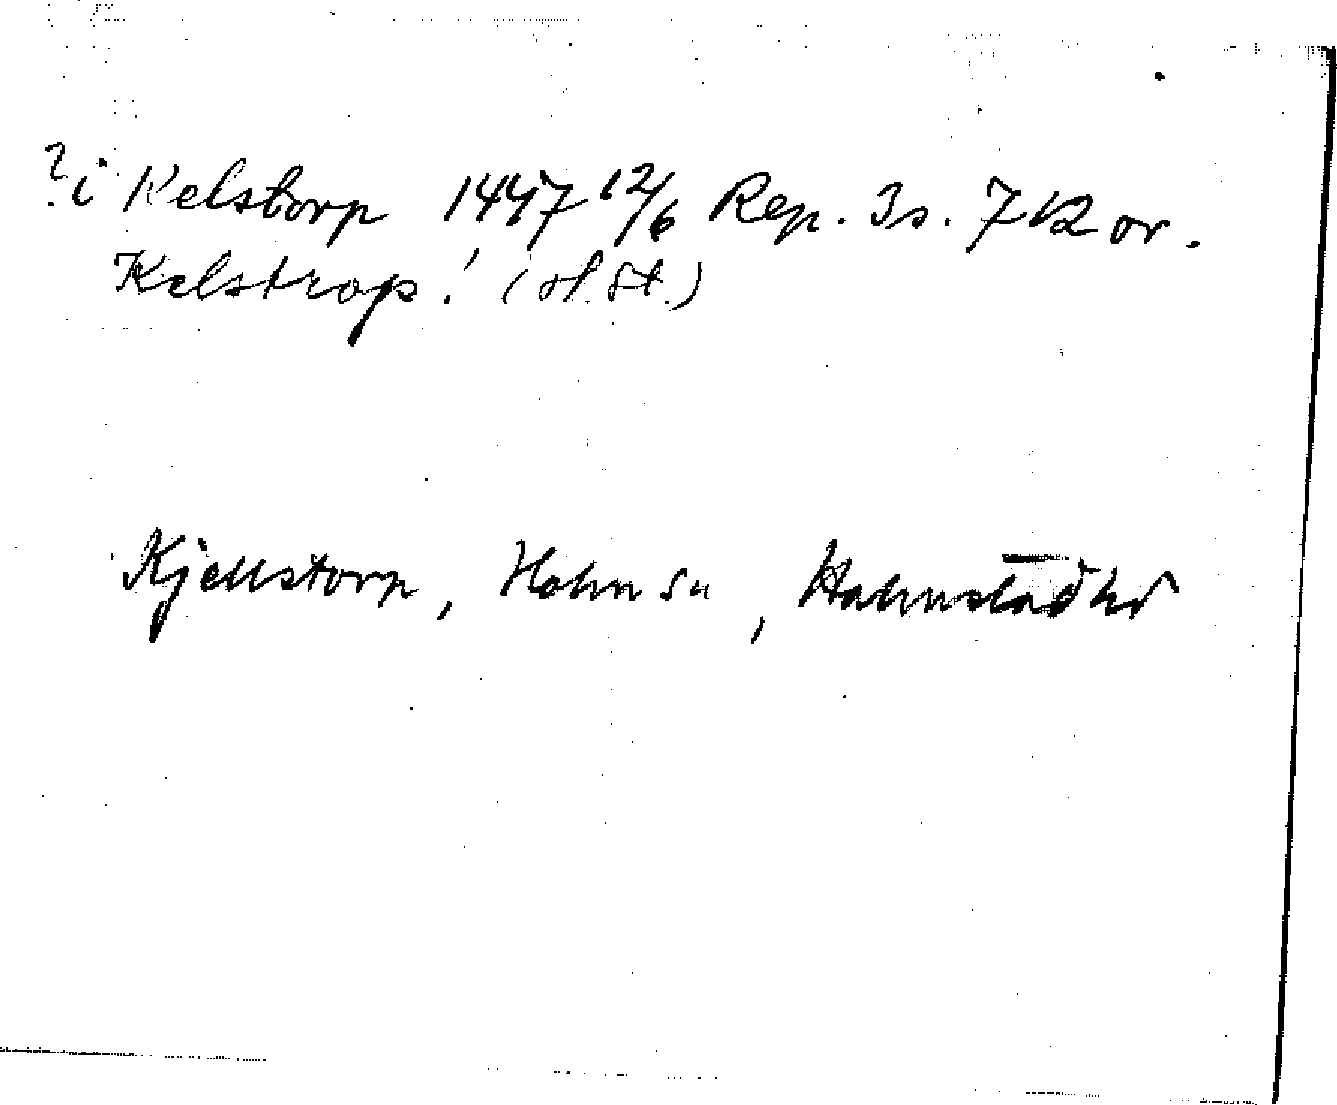 ? i Kelstorp 1447 12/6 Rep. 3 s. 712 or.
Kelstrop! (ol. st.)
Kjellstorp, Holm sn, Halmstads hd